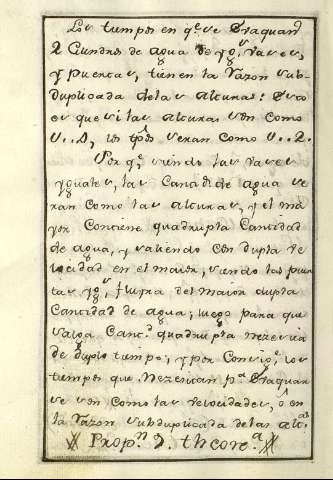 Los tumpos en q.e se Traquan
2 Cilindros de agua de yg.s vases,
y puertas, tienen la razon sub-
duplicada de las alturas: Esto
es que si las alturas son como
1..4, los tpõs seran como 1..2.
Por q.e siendo las vases
yguales, las Cantid.s de agua se
ran como las alturas, y el ma
yor Contiene quadrupla Cantidad
de agua, y saliendo con dupla ve
locidad en el maior, siendo las puer
tas yg.s, fluira del maior dupla
Cantidad de agua; luego para que
salga Cant.d quadrupla necesita
de duplo tumpo; y por Consig.e los
tumpos que necesitan p.a
se son como las velocidades, ô en
la razon subduplicada de las alt.as
Prop.n 9. theore.a